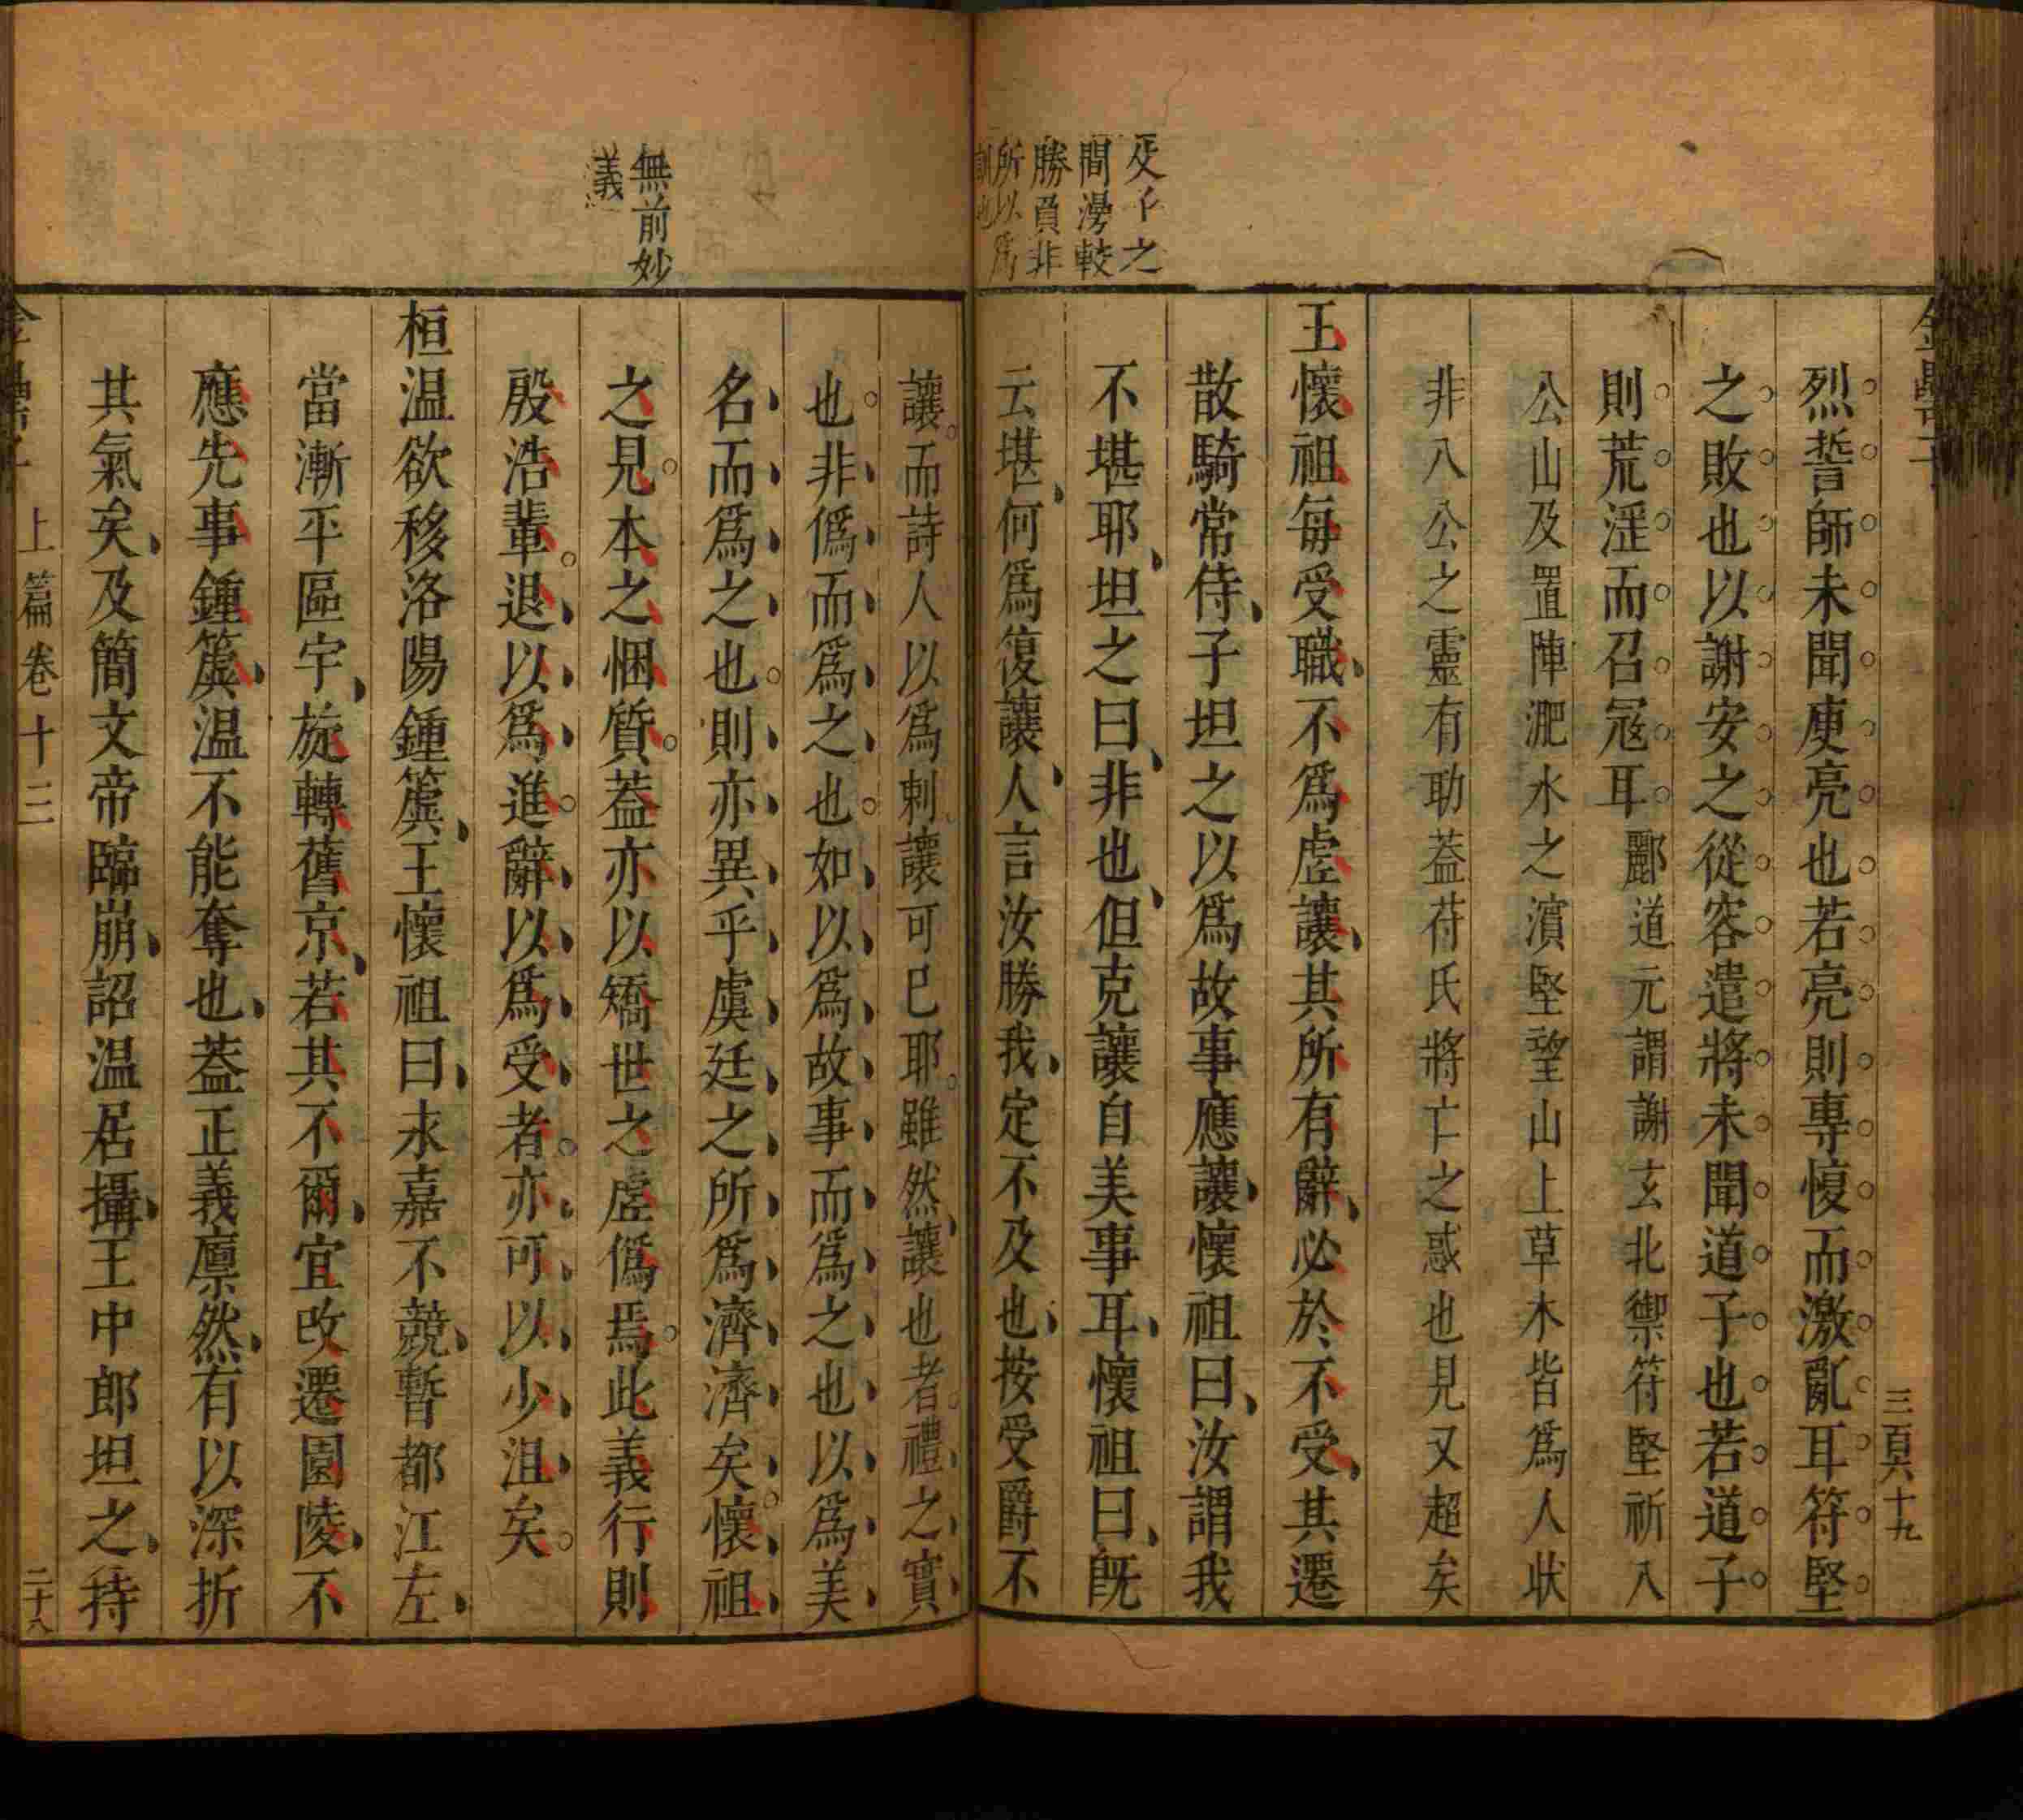 三百十九
烈誓師未聞庾亮也若亮則專愎而激亂耳符堅
之敗也以謝安之從容遣將未聞道子也若道子
則荒淫而召冦耳酈道元謂謝玄北禦符堅祈八
公山及置陣淝水之濱堅望山上草木皆爲人狀
非八公之靈有助葢苻氏將亡之惑也見又超矣
王懷祖每受職不爲虛讓其所有辭必於不受其遷
散騎常侍子坦之以爲故事應讓懷祖曰汝謂我
不堪耶坦之曰非也但克讓自美事耳懷祖曰既
云堪何爲復讓人言汝勝我定不及也按受爵不
之
間漫較
勝負非
所以爲
訓也
讓而詩人以爲刺讓可已耶雖然讓也者禮之實
也非僞而爲之也如以爲故事而爲之也以爲美
名而爲之也則亦異乎虞廷之所爲濟濟矣懷祖
之見本之悃質葢亦以矯世之虛僞焉此義行則
殷浩輩退以爲進辭以爲受者亦可以少沮矣
無前妙
義
桓温欲移洛陽鍾簴王懷祖曰永嘉不競暫都江左
當漸平區宇旋轉舊京若其不爾宜改遷園陵不
應先事鍾簴温不能奪也葢正義凛然有以深折
其氣矣及簡文帝臨崩詔温居攝王中郎坦之持
上篇卷十三
二十八